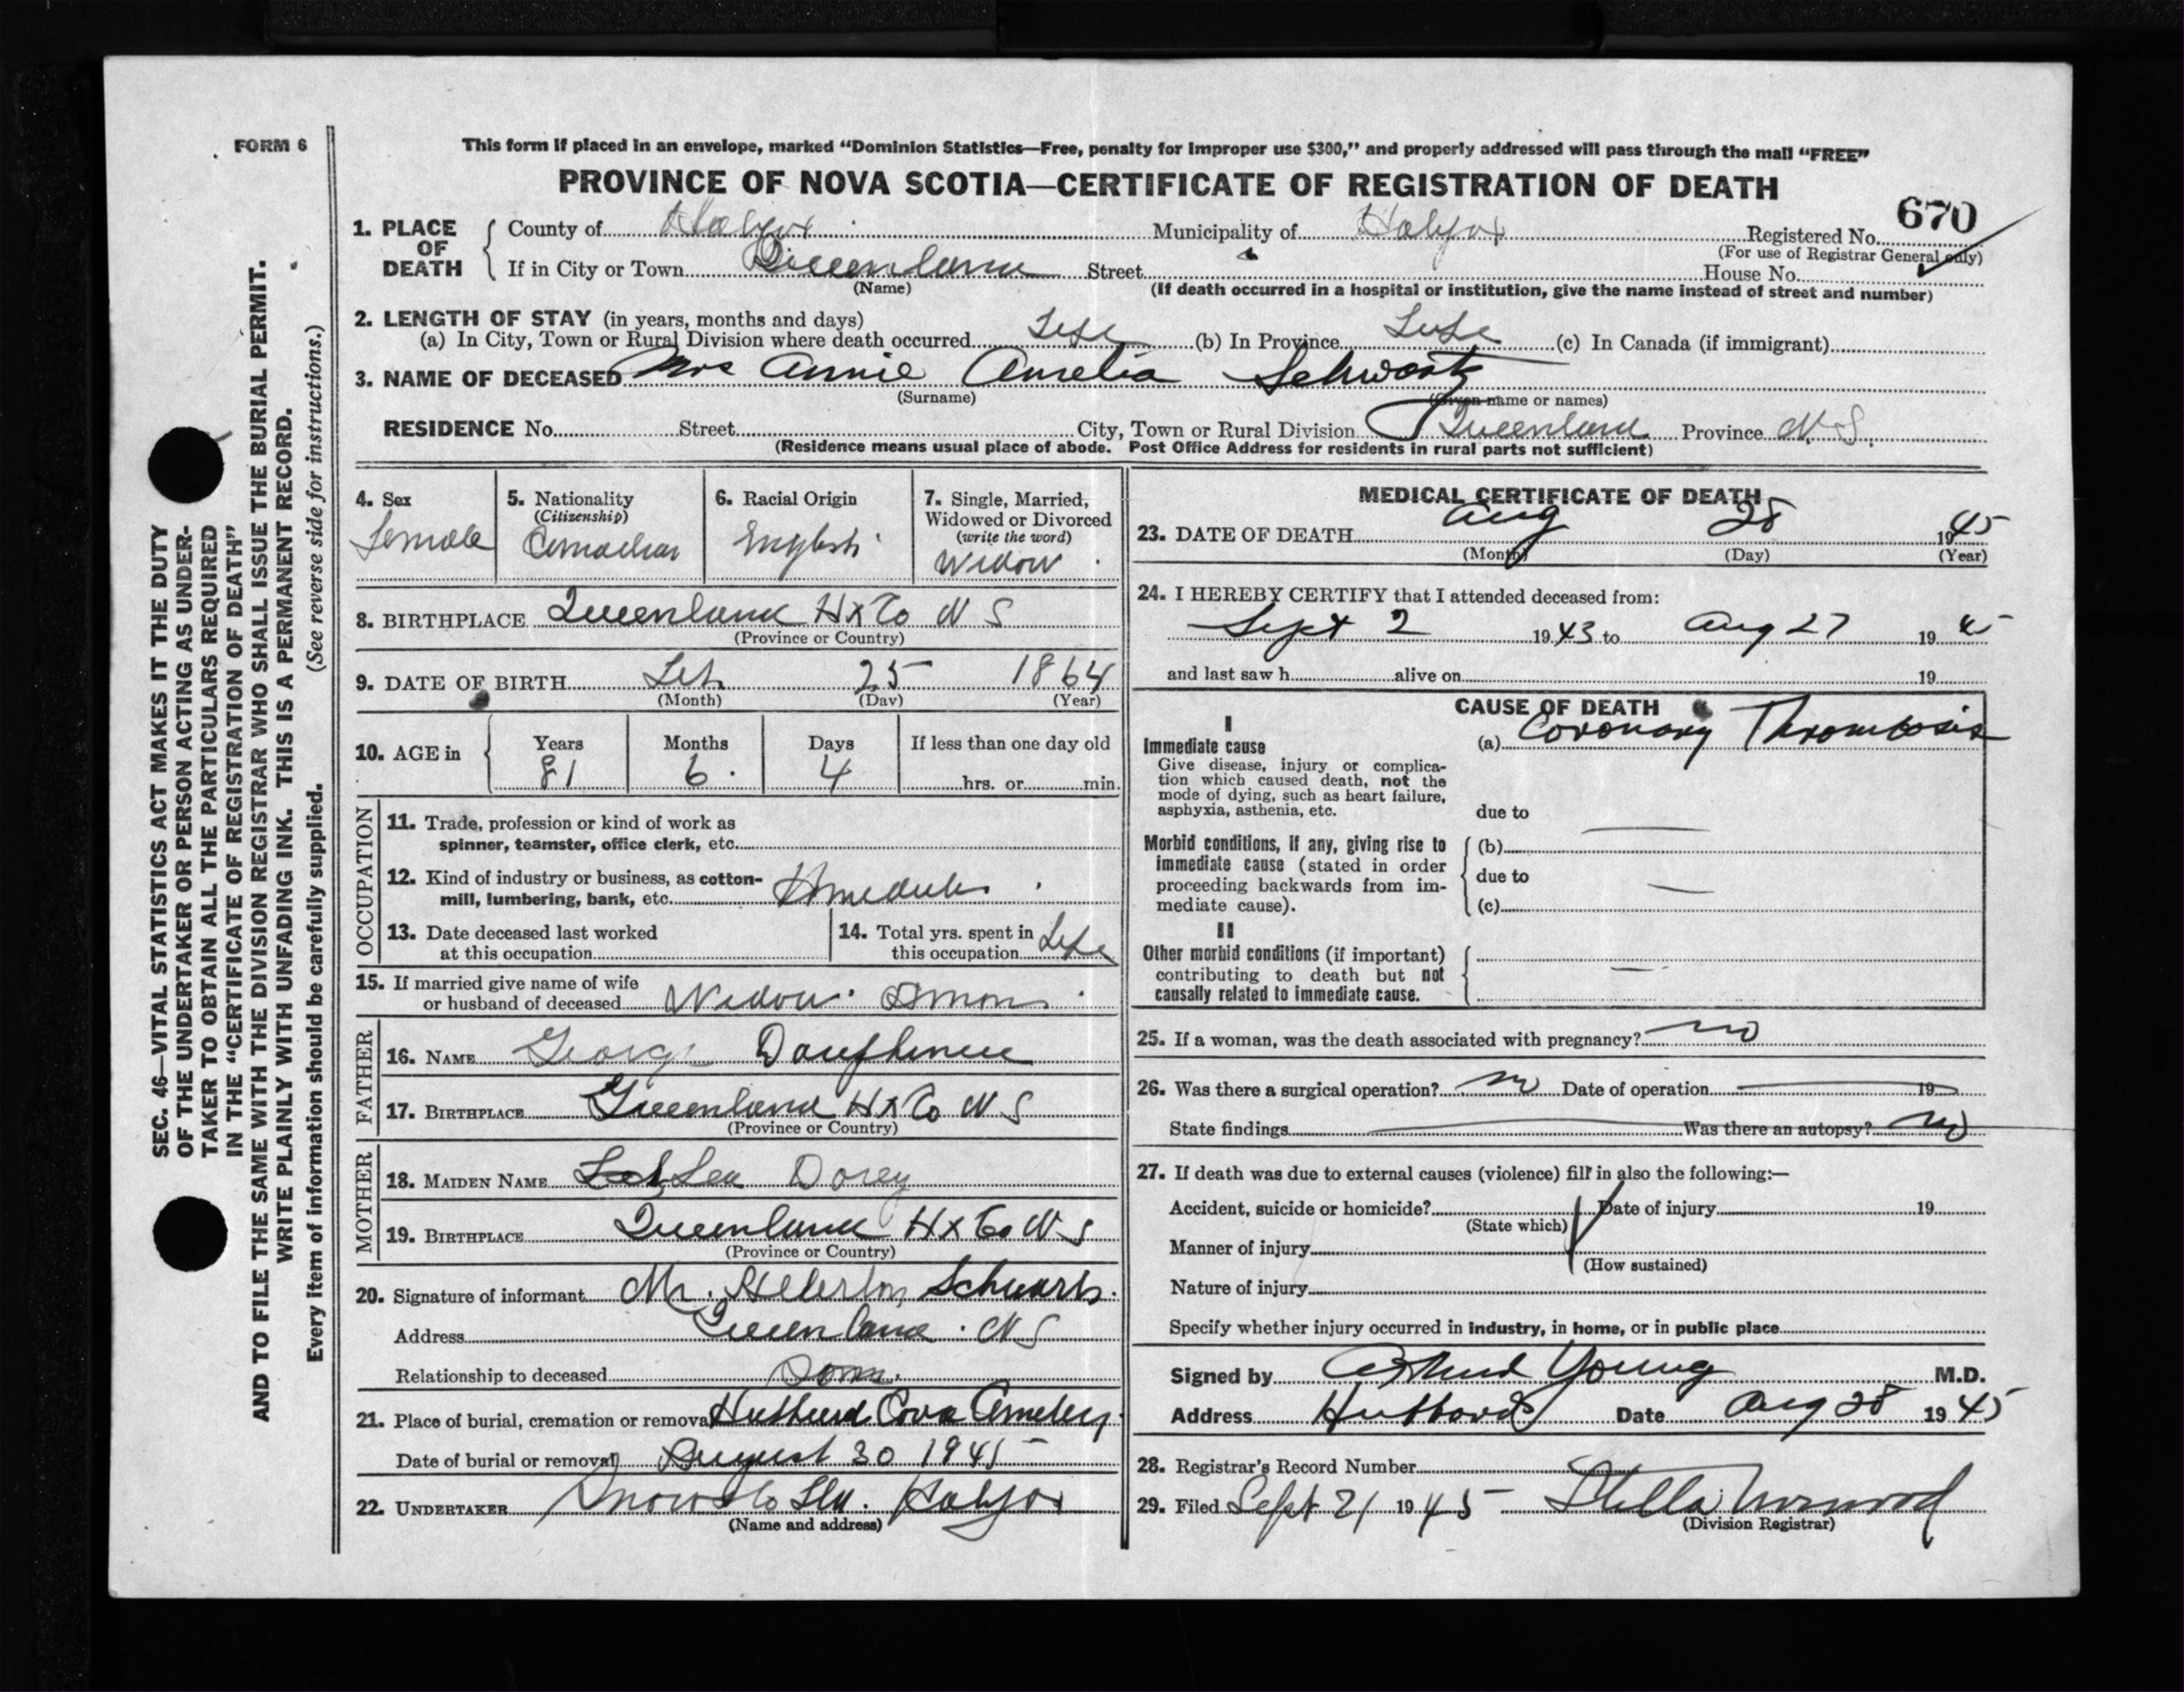 FORM 6
This form if placed in an envelope, marked "Dominion Statistics—Free, penalty for improper use $300," and properly addressed will pass through the mail "FREE"
PROVINCE OF NOVA SCOTIA—CERTIFICATE OF REGISTRATION OF DEATH
670
1. PLACE OF DEATH
County of Halifax Municipality of Halifax Registered No.
(For use of Registrar General only)
If in City or Town Queensland Street House No.
(Name) (If death occurred in a hospital or institution, give the name instead of street and number)
2. LENGTH OF STAY (in years, months and days)
(a) In City, Town or Rural Division where death occurred Life (b) In Province Life (c) In Canada (if immigrant)
3. NAME OF DECEASED Mrs Annie Amelia Schwartz
(Surname) (Given name or names)
RESIDENCE No. Street City, Town or Rural Division Queensland Province N.S.
(Residence means usual place of abode. Post Office Address for residents in rural parts not sufficient)
4. Sex
Female
5. Nationality
(Citizenship)
Canadian
6. Racial Origin
English
7. Single, Married,
Widowed or Divorced
(write the word)
Widow
8. BIRTHPLACE Queensland Hx Co N S
(Province or Country)
9. DATE OF BIRTH 25 1864
(Month) (Day) (Year)
10. AGE in
Years Months Days If less than one day old
81 6 4 hrs. or min.
OCCUPATION
11. Trade, profession or kind of work as
spinner, teamster, office clerk, etc.
12. Kind of industry or business, as cotton-
mill, lumbering, bank, etc.
13. Date deceased last worked
at this occupation
14. Total yrs. spent in
this occupation Life
15. If married give name of wife
or husband of deceased Widow
FATHER
16. NAME George Dauphinee
17. BIRTHPLACE Queensland Hx Co N S
(Province or Country)
MOTHER
18. MAIDEN NAME Dorey
19. BIRTHPLACE Queensland Hx Co N S
(Province or Country)
20. Signature of informant Mr. Schwartz
Address Queensland N S
Relationship to deceased Son
21. Place of burial, cremation or removal Hubbard Cove Cemetery
Date of burial or removal August 30 1945
22. UNDERTAKER Snow & Co Ltd. Halifax
(Name and address)
MEDICAL CERTIFICATE OF DEATH
23. DATE OF DEATH Aug 28 1945
(Month) (Day) (Year)
24. I HEREBY CERTIFY that I attended deceased from:
Sept 2 1943 to Aug 27 19 45
and last saw h alive on 19
CAUSE OF DEATH
I
Immediate cause
Give disease, injury or complica-
tion which caused death, not the
mode of dying, such as heart failure,
asphyxia, asthenia, etc.
(a) Coronary Thrombosis
due to
Morbid conditions, if any, giving rise to
immediate cause (stated in order
proceeding backwards from im-
mediate cause).
(b)
due to
(c)
II
Other morbid conditions (if important)
contributing to death but not
causally related to immediate cause.
25. If a woman, was the death associated with pregnancy? no
26. Was there a surgical operation? no Date of operation 19
State findings Was there an autopsy? no
27. If death was due to external causes (violence) fill in also the following:—
Accident, suicide or homicide? Date of injury 19
(State which)
Manner of injury
(How sustained)
Nature of injury
Specify whether injury occurred in industry, in home, or in public place
Signed by Arthur Young M.D.
Address Hubbards Date Aug 28 1945
28. Registrar's Record Number
29. Filed Sept 21 1945 Stella Norwood
(Division Registrar)
SEC. 46—VITAL STATISTICS ACT MAKES IT THE DUTY
OF THE UNDERTAKER OR PERSON ACTING AS UNDER-
TAKER TO OBTAIN ALL THE PARTICULARS REQUIRED
IN THE "CERTIFICATE OF REGISTRATION OF DEATH"
AND TO FILE THE SAME WITH THE DIVISION REGISTRAR WHO SHALL ISSUE THE BURIAL PERMIT.
WRITE PLAINLY WITH UNFADING INK. THIS IS A PERMANENT RECORD.
Every item of information should be carefully supplied. (See reverse side for instructions.)